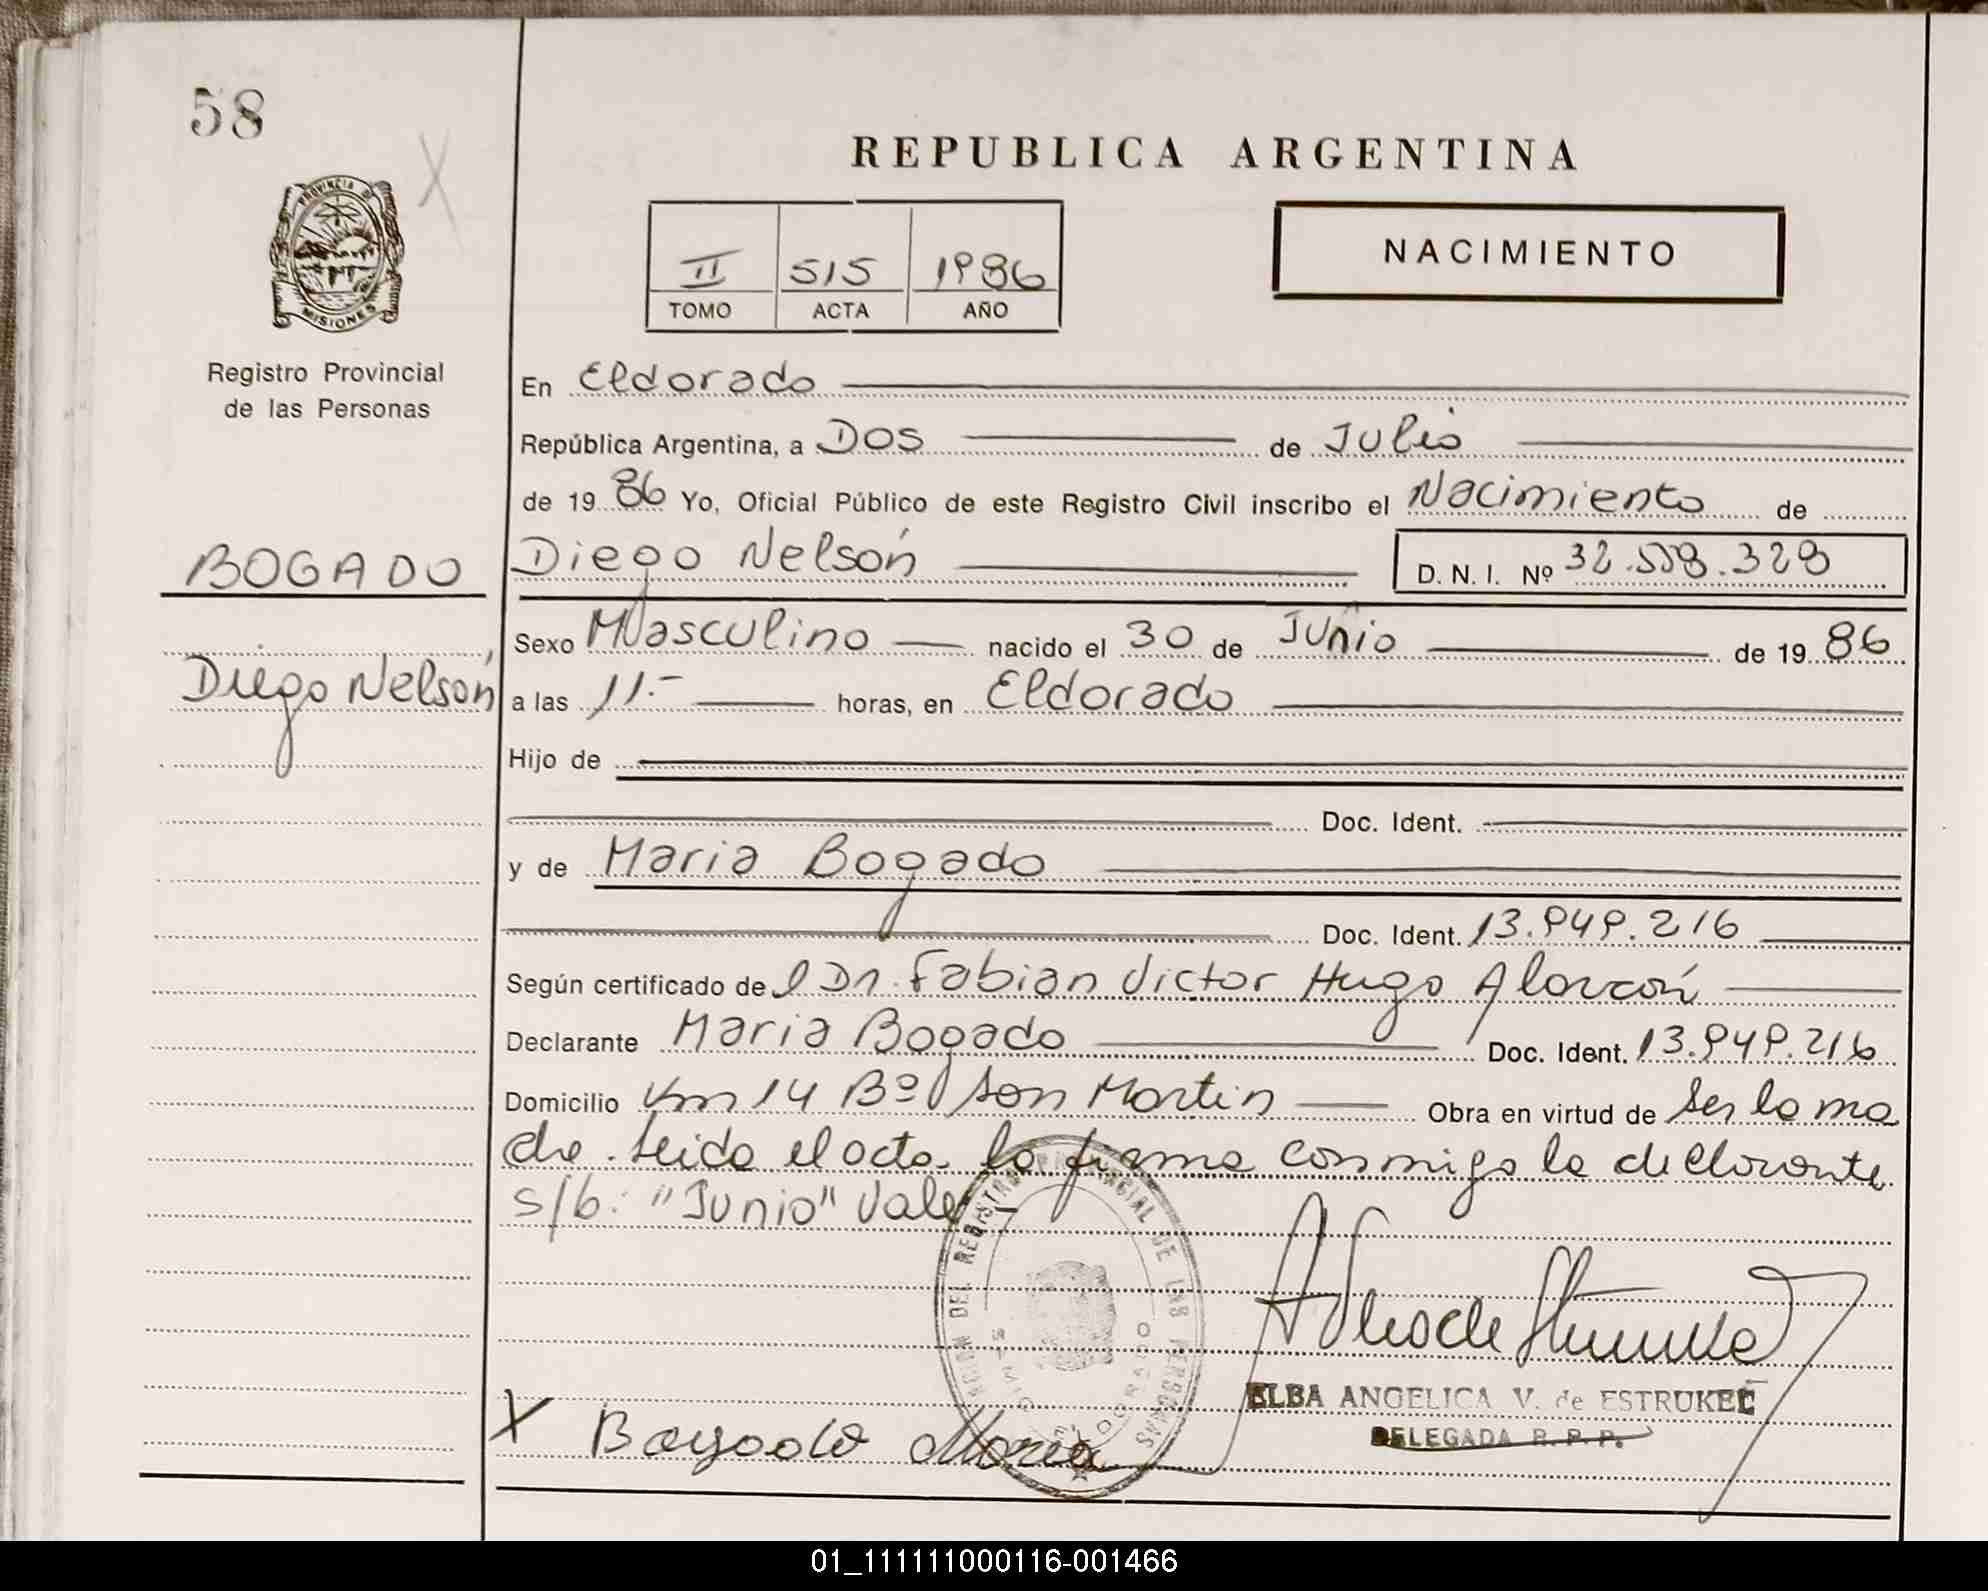 58
REPUBLICA ARGENTINA
PROVINCIA DE
MISIONES
II 515 1986
TOMO ACTA AÑO
NACIMIENTO
Registro Provincial
de las Personas
En Eldorado
República Argentina, a Dos de Julio
de 19 86 Yo, Oficial Público de este Registro Civil inscribo el Nacimiento de
BOGADO
Diego Nelsón D. N. I. Nº 32.558.328
Sexo Masculino nacido el 30 de Junio de 19 86
Diego Nelsón
a las 11.- horas, en Eldorado
Hijo de
Doc. Ident.
y de Maria Bogado
Doc. Ident. 13.949.216
Según certificado de l Dr. Fabian Victor Hugo Alarcón
Declarante Maria Bogado Doc. Ident. 13.949.216
Domicilio Km 14 Bº San Martin Obra en virtud de ser la ma
dre. Leida el acta la firma conmigo la declarante
s/b: "Junio" Vale -
DEL REGISTRO PROVINCIAL DE LAS PERSONAS
ELDORADO
ELBA ANGELICA V. de ESTRUKEL
DELEGADA R. P. P.
X Bogado Maria
01_111111000116-001466